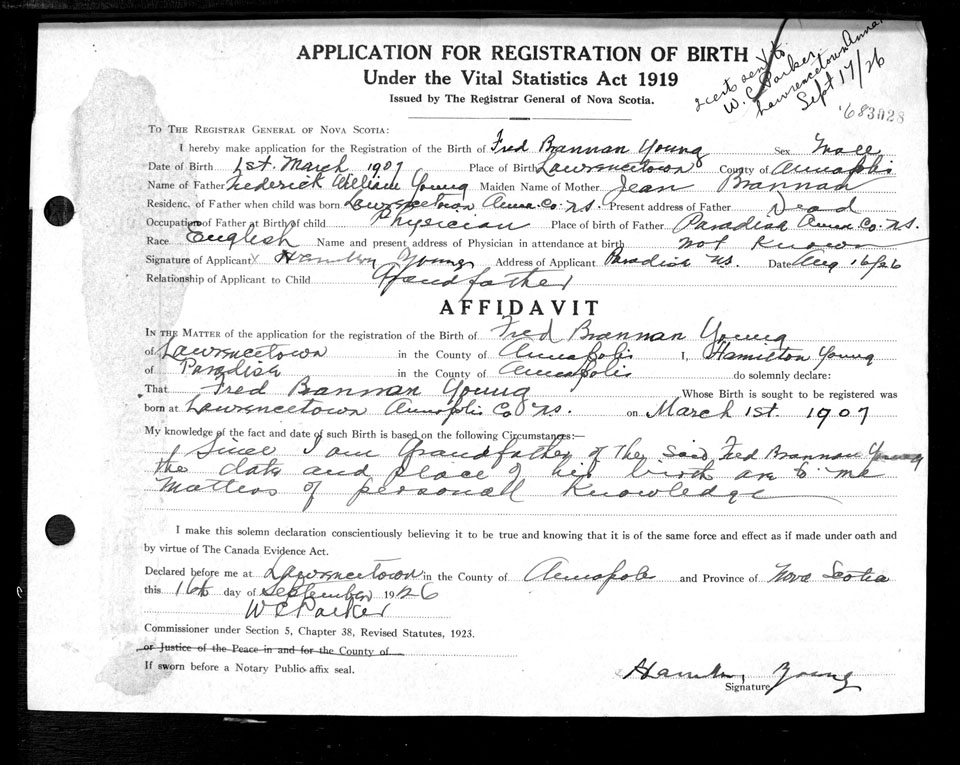 APPLICATION FOR REGISTRATION OF BIRTH
Under the Vital Statistics Act 1919
Issued by The Registrar General of Nova Scotia.
2 certs sent to
W. C. Parker
Lawrencetown Anna.
Sept 17/26
683928
To The Registrar General of Nova Scotia:
I hereby make application for the Registration of the Birth of Fred Brannan Young Sex Male
Date of Birth 1st. March 1907 Place of Birth Lawrencetown County of Annapolis
Name of Father Frederick William Young Maiden Name of Mother Jean Brannan
Residenc. of Father when child was born Lawrencetown Anna. Co. N.S. Present address of Father Dead
Occupation of Father at Birth of child Physician Place of birth of Father Paradise Anna. Co. N.S.
Race English Name and present address of Physician in attendance at birth not known
Signature of Applicant X Hamilton Young Address of Applicant Paradise N.S. Date Aug 16/26
Relationship of Applicant to Child Grandfather
AFFIDAVIT
In the Matter of the application for the registration of the Birth of Fred Brannan Young
of Lawrencetown in the County of Annapolis I, Hamilton Young
of Paradise in the County of Annapolis do solemnly declare:
That Fred Brannan Young Whose Birth is sought to be registered was
born at Lawrencetown Annapolis Co. N.S. on March 1st. 1907
My knowledge of the fact and date of such Birth is based on the following Circumstances:—
Since I am Grandfather of the said Fred Brannan Young
the date and place of his birth are to me
matters of personall knowledge
I make this solemn declaration conscientiously believing it to be true and knowing that it is of the same force and effect as if made under oath and
by virtue of The Canada Evidence Act.
Declared before me at Lawrencetown in the County of Annapolis and Province of Nova Scotia
this 16th day of September 1926
W C Parker
Commissioner under Section 5, Chapter 38, Revised Statutes, 1923.
or Justice of the Peace in and for the County of
If sworn before a Notary Public affix seal.
Hamilton Young
Signature